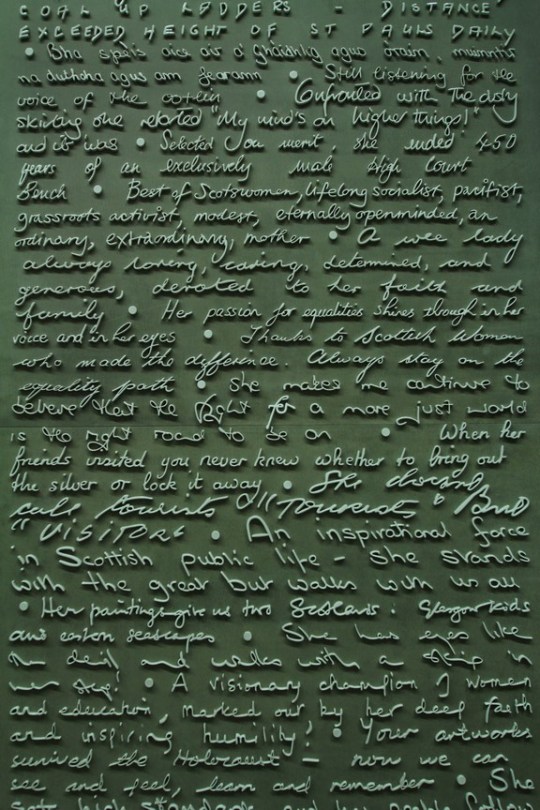 COAL UP LADDERS - DISTANCE
EXCEEDED HEIGHT OF ST PAULS DAILY
• Bha spèis aice air a' ghàidhlig agus òrain, muinntir
na dùthcha agus am fearann • Still listening for the
voice of the • Confronted with the dusty
skirting she retorted "My mind's on higher things!"
and it was • Selected on merit, she ended 450
years of an exclusively male High Court
Bench • Best of Scotswomen, lifelong socialist, pacifist,
grassroots activist, modest, eternally openminded, an
ordinary, extraordinary, mother • A wee lady
always loving, caring, determined, and
generous, devoted to her faith and
family • Her passion for equalities shines through in her
voice and in her eyes • Thanks to Scottish Women
who made the difference. Always stay on the
equality path • She makes me continue to
believe that the fight for a more just world
is the right road to be on • When her
friends visited you never knew whether to bring out
the silver or lock it away • She
call tourists "TOURISTS" But
"VISITORS" • An inspirational force
in Scottish public life - she stands
with the great but walks with us all
• Her paintings give us two Scotlands: Glasgow kids
and eastern seascapes • She has eyes like
the devil and walks with a skip in
her step! • A visionary champion of women
and education, marked out by her deep faith
and inspiring humility! • Your artworks
survived the Holocaust - now we can
see and feel, learn and remember • She
set high standards and